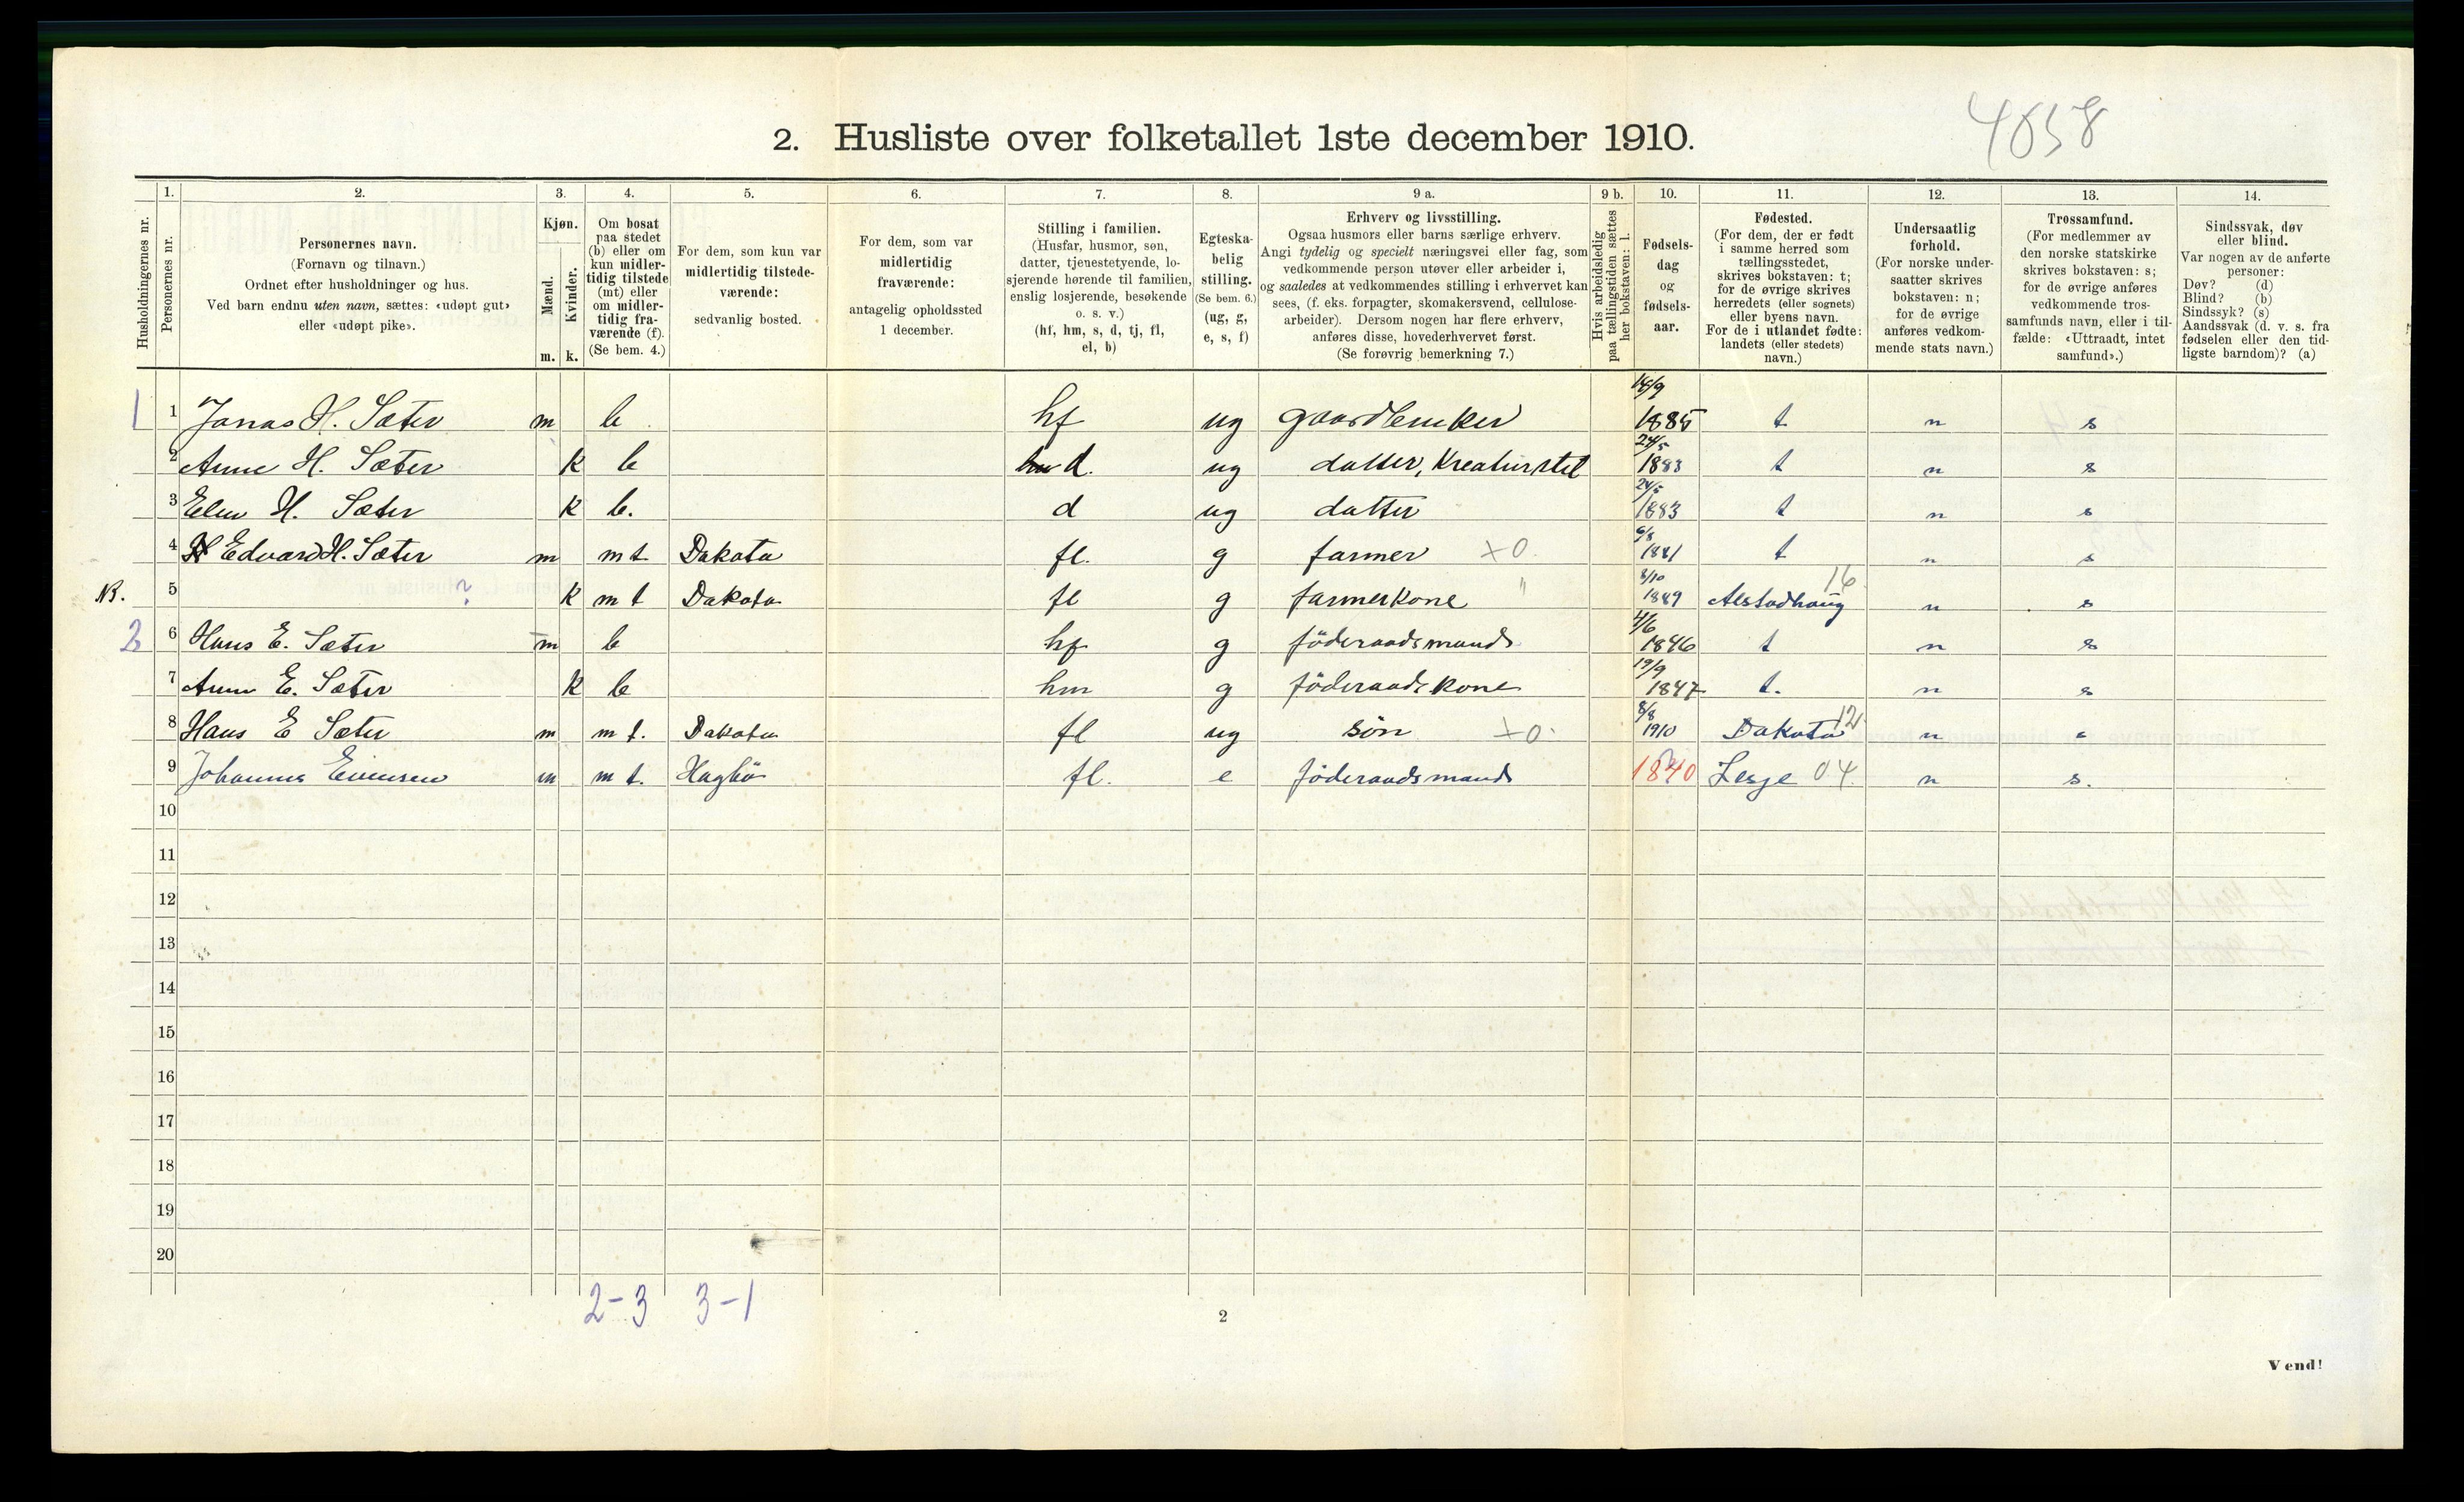 4058
2. Husliste over folketallet 1ste december 1910.
Husholdningernes nr.
1. Personernes nr.
2. Personernes navn. (Fornavn og tilnavn.) Ordnet efter husholdninger og hus. Ved barn endnu uten navn, sættes: «udøpt gut» eller «udøpt pike».
3. Kjøn. Mænd. m. Kvinder. k.
4. Om bosat paa stedet (b) eller om kun midlertidig tilstede (mt) eller om midlertidig fraværende (f). (Se bem. 4.)
5. For dem, som kun var midlertidig tilstedeværende: sedvanlig bosted.
6. For dem, som var midlertidig fraværende: antagelig opholdssted 1 december.
7. Stilling i familien. (Husfar, husmor, søn, datter, tjenestetyende, losjerende hørende til familien, enslig losjerende, besøkende o. s. v.) (hf, hm, s, d, tj, fl, el, b)
8. Egteskabelig stilling. (Se bem. 6.) (ug, g, e, s, f)
9 a. Erhverv og livsstilling. Ogsaa husmors eller barns særlige erhverv. Angi tydelig og specielt næringsvei eller fag, som vedkommende person utøver eller arbeider i, og saaledes at vedkommendes stilling i erhvervet kan sees, (f. eks. forpagter, skomakersvend, cellulosearbeider). Dersom nogen har flere erhverv, anføres disse, hovederhvervet først. (Se forøvrig bemerkning 7.)
9 b. Hvis arbeidsledig paa tællingstiden sættes her bokstaven: l.
10. Fødselsdag og fødselsaar.
11. Fødested. (For dem, der er født i samme herred som tællingsstedet, skrives bokstaven: t; for de øvrige skrives herredets (eller sognets) eller byens navn. For de i utlandet fødte: landets (eller stedets) navn.)
12. Undersaatlig forhold. (For norske undersaatter skrives bokstaven: n; for de øvrige anføres vedkommende stats navn.)
13. Trossamfund. (For medlemmer av den norske statskirke skrives bokstaven: s; for de øvrige anføres vedkommende trossamfunds navn, eller i tilfælde: «Uttraadt, intet samfund».)
14. Sindssvak, døv eller blind. Var nogen av de anførte personer: Døv? (d) Blind? (b) Sindssyk? (s) Aandssvak (d. v. s. fra fødselen eller den tidligste barndom)? (a)
1 1 Jonas H. Sæter m b hf ug gaardbruker 14/9 1885 t n s
2 Anne H. Sæter k b d. ug datter, Kreaturstel 24/5 1883 t n s
3 Elen H. Sæter k b. d ug datter 24/5 1883 t n s
4 Edvard H. Sæter m mt Dakota fl. g farmer x0. 6/8 1881 t n s
NB. 5 ? k mt Dakota fl g farmerkone " 8/10 1889 Alstadhaug 16 n s
2 6 Hans E. Sæter m b hf g föderaadsmand 4/6 1846 t n s
7 Anne E. Sæter k b hm g föderaadskone 19/9 1847 t. n s
8 Hans E Sæter m mt. Dakota fl ug sön x0. 8/8 1910 Dakota 12 n s
9 Johannes m mt. Hagbö fl. e föderaadsmand 1840 Lesje 04 n s.
10
11
12
13
14
15
16
17
18
19
20
2-3 3-1
2
Vend!